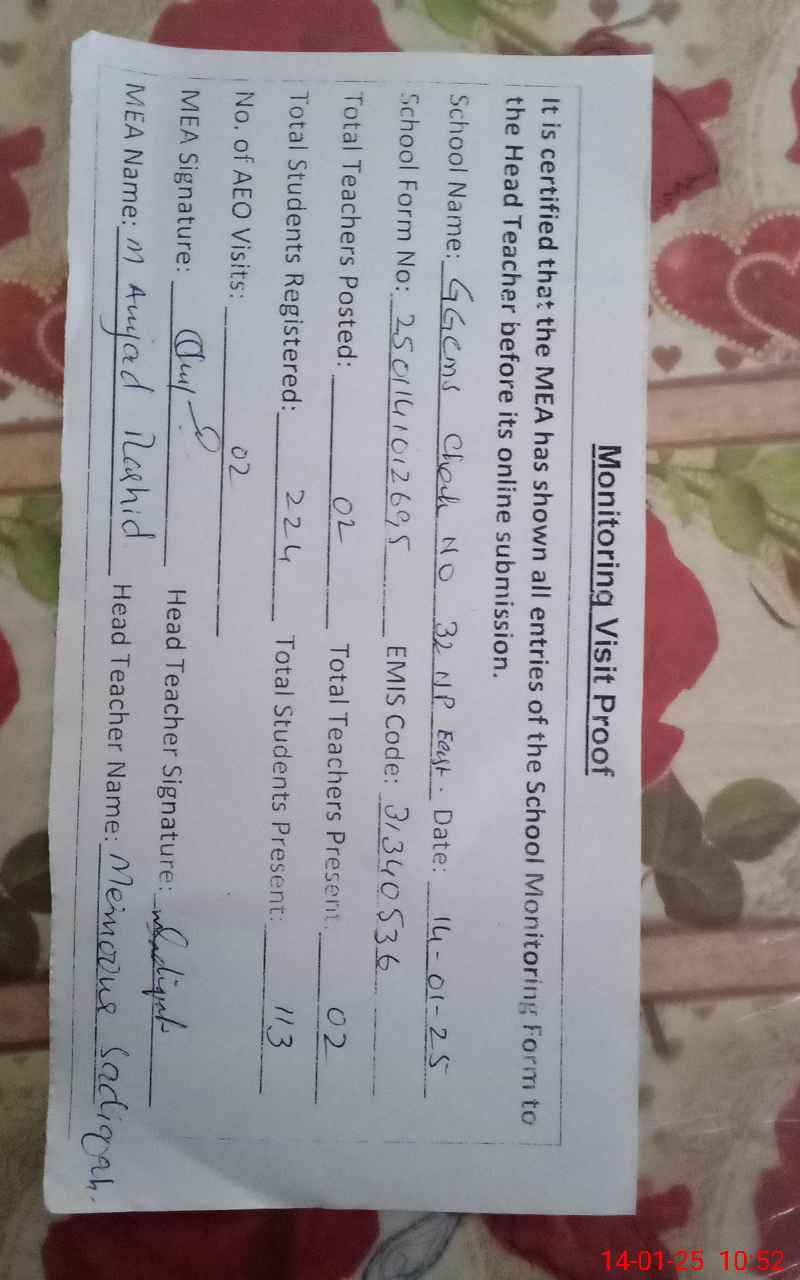 Monitoring Visit Proof
It is certified that the MEA has shown all entries of the School Monitoring Form to
the Head Teacher before its online submission.
School Name: GGCMS Chak NO 32 NP East. Date: 14-01-25
School Form No: 2501141012695 EMIS Code: 31340536
Total Teachers Posted: 02 Total Teachers Present: 02
Total Students Registered: 224 Total Students Present: 113
No. of AEO Visits: 02
MEA Signature: Head Teacher Signature:
MEA Name: M Amjad Rashid Head Teacher Name: Meimoona Sadiqah.
14-01-25 10:52